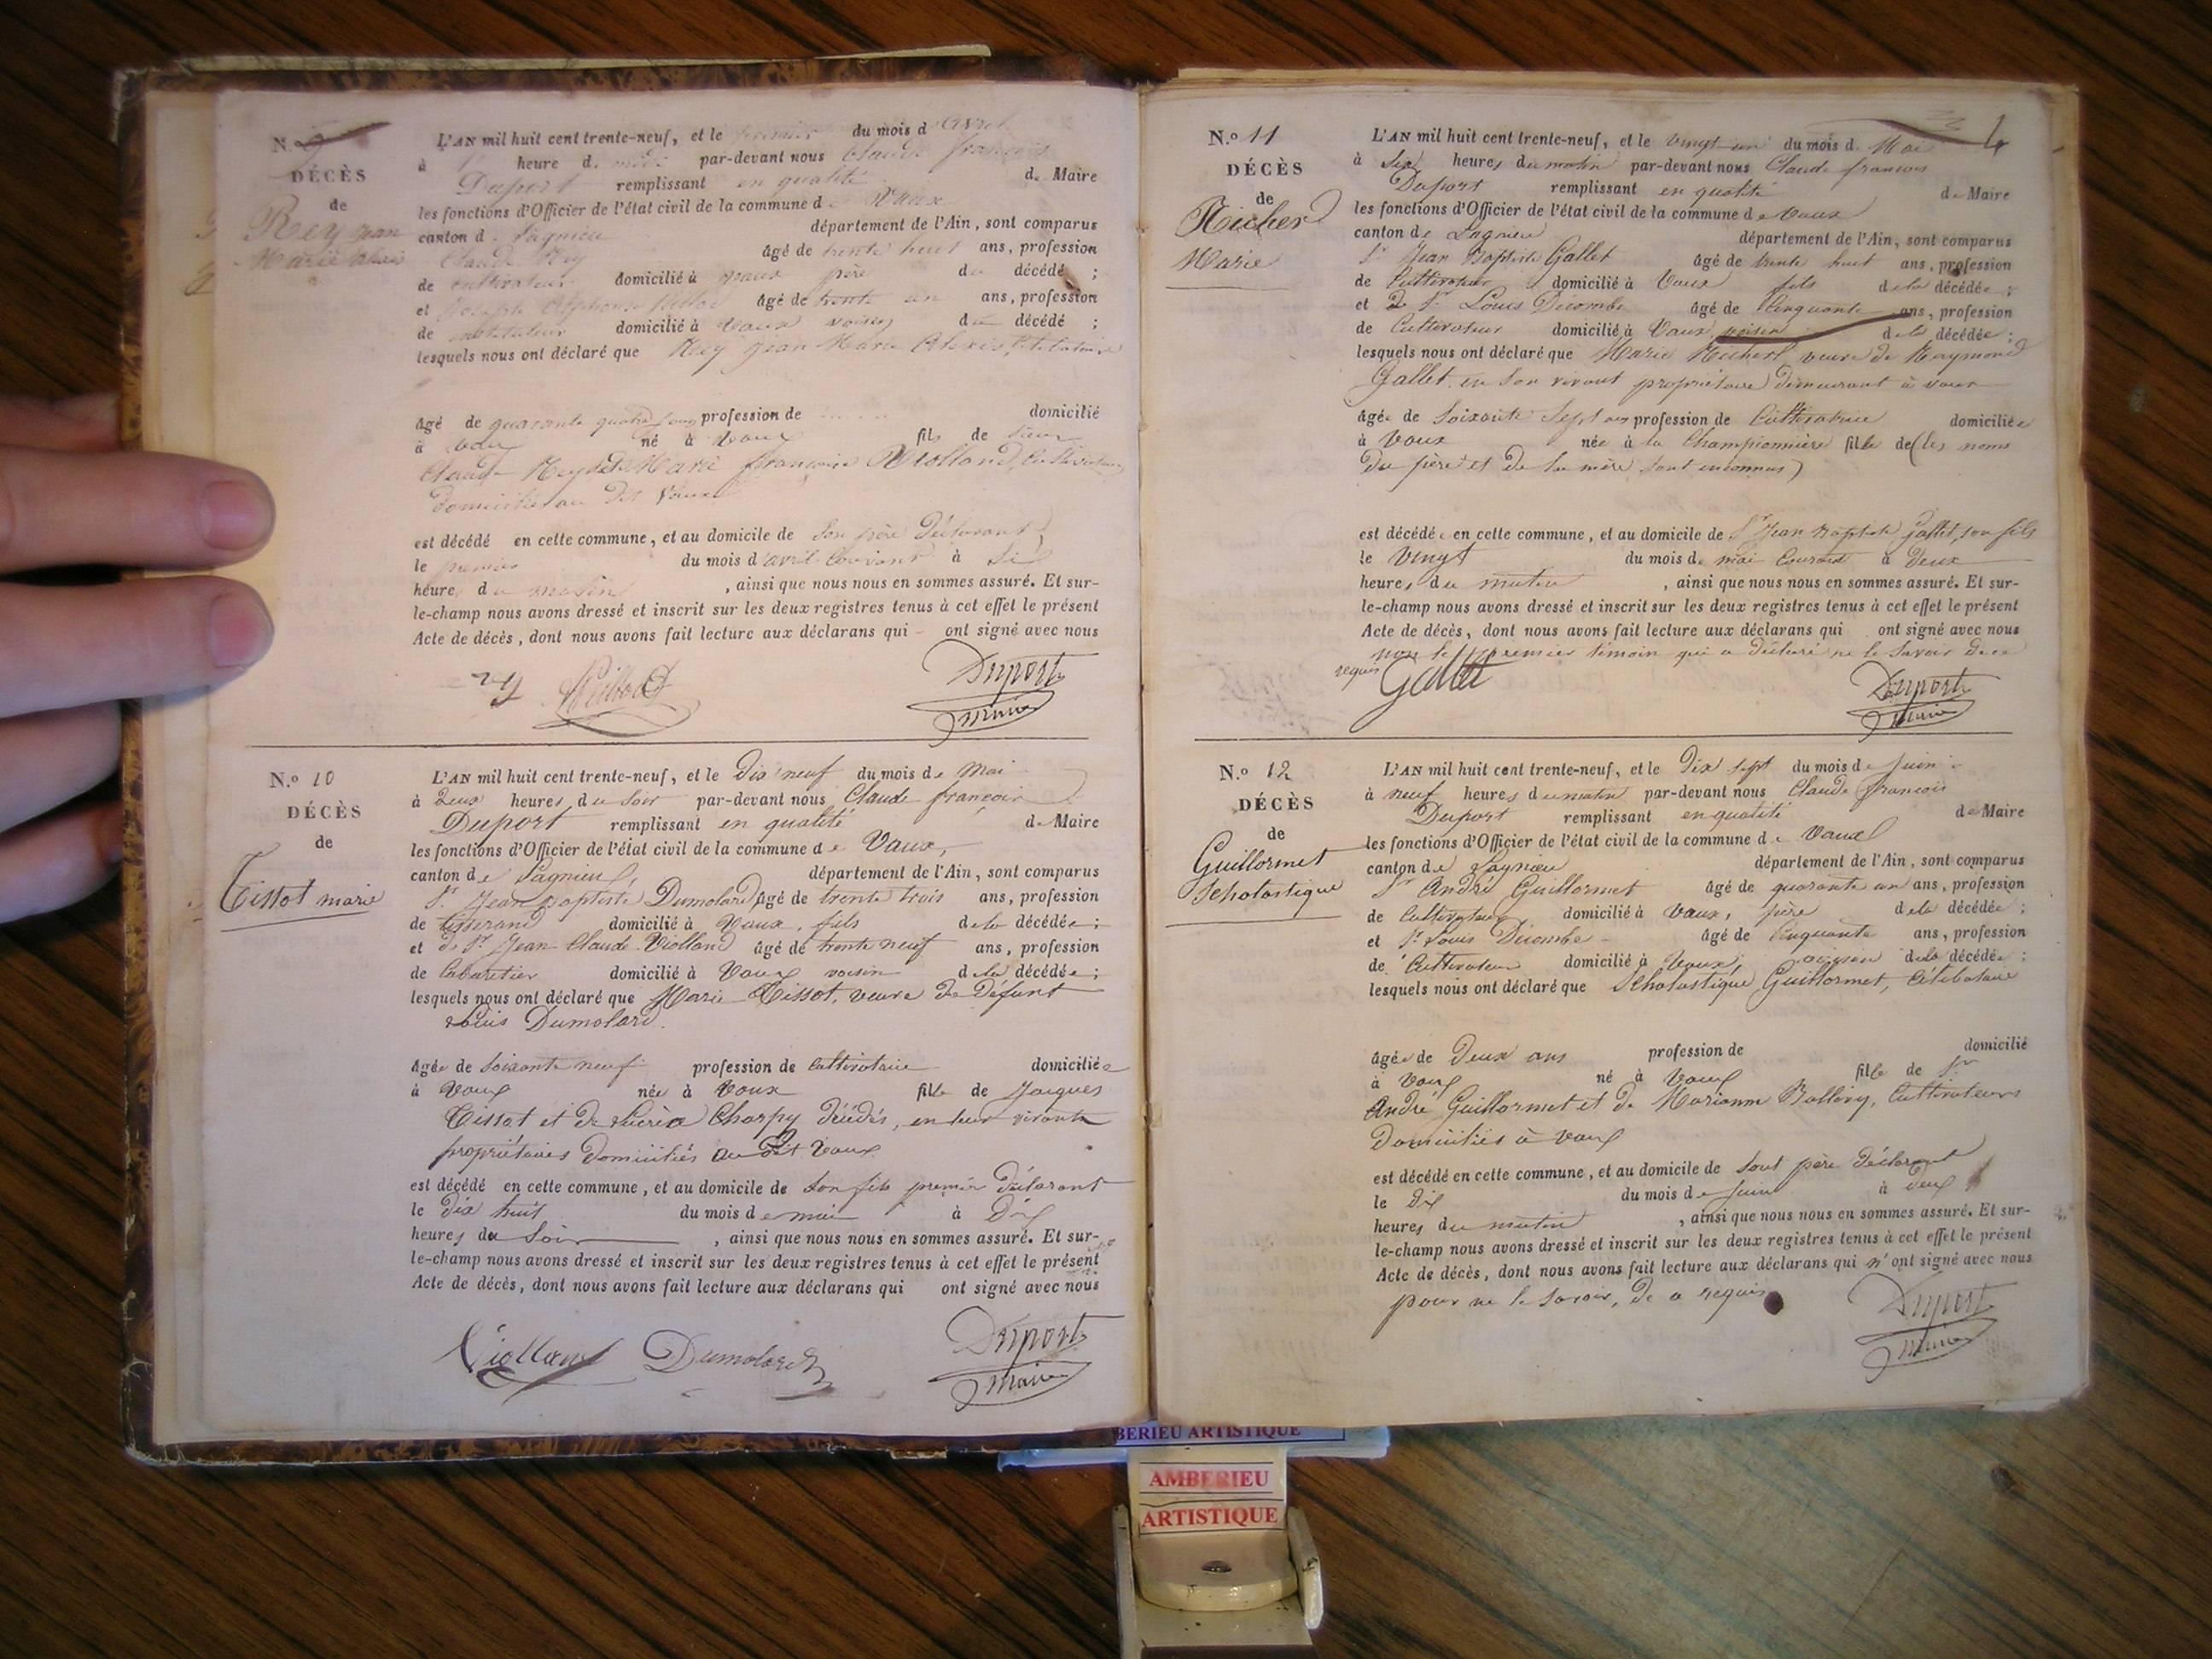 N.º 9
DÉCÈS
de
Rey jean
Marie Alexis
L'AN mil huit cent trente-neuf, et le premier du mois d'avril
à heure d. midi par-devant nous Claude françois
Duport remplissant en qualité de Maire
les fonctions d'Officier de l'état civil de la commune de Vaux
canton de Lagnieu département de l'Ain, sont comparus
Claude Rey âgé de trente huit ans, profession
de cultivateur domicilié à Vaux père du décédé ;
et Joseph Alphonse âgé de trente un ans, profession
de instituteur domicilié à Vaux voisin du décédé ;
lesquels nous ont déclaré que Rey Jean Marie Alexis, célibataire
âgé de quarante quatre jours profession de domicilié
à Vaux né à Vaux fils de sieur
Claude Rey et de Marie françoise Violland, Cultivateurs
domiciliés au dit Vaux
est décédé en cette commune, et au domicile de son père Déclarant,
le premier du mois d'avril Courant à six
heures du matin, ainsi que nous nous en sommes assuré. Et sur-
le-champ nous avons dressé et inscrit sur les deux registres tenus à cet effet le présent
Acte de décès, dont nous avons fait lecture aux déclarans qui ont signé avec nous
Rey Duport
maire
N.º 10
DÉCÈS
de
Tissot marie
L'AN mil huit cent trente-neuf, et le Dix neuf du mois de Mai
à Deux heures du Soir par-devant nous Claude françois
Duport remplissant en qualité de Maire
les fonctions d'Officier de l'état civil de la commune de Vaux,
canton de Lagnieu, département de l'Ain, sont comparus
Sr. Jean Baptiste Dumolard âgé de trente trois ans, profession
de tisserand domicilié à Vaux, fils de la décédée ;
et de Sr Jean Claude Violland âgé de trente neuf ans, profession
de Cabaretier domicilié à Vaux voisin de la décédée ;
lesquels nous ont déclaré que Marie Tissot, veuve de Défunt
Louis Dumolard.
âgée de soixante neuf profession de Cultivatrice domiciliée
à Vaux née à Vaux fille de Jacques
Tissot et de Lucrèce Charpy décédés, en leur vivants
propriétaires Domiciliés au dit Vaux
est décédé en cette commune, et au domicile de son fils premier Déclarant
le Dix huit du mois de mai à Dix
heures du Soir, ainsi que nous nous en sommes assuré. Et sur-
le-champ nous avons dressé et inscrit sur les deux registres tenus à cet effet le présent
Acte de décès, dont nous avons fait lecture aux déclarans qui ont signé avec nous
Violland Dumolard Duport
maire
4
N.º 11
DÉCÈS
de
Richerd
Marie
L'AN mil huit cent trente-neuf, et le vingt un du mois d. Mai
à six heures du matin par-devant nous Claude françois
Duport remplissant en qualité de Maire
les fonctions d'Officier de l'état civil de la commune de Vaux
canton de Lagnieu département de l'Ain, sont comparus
Sr Jean Baptiste Gallet âgé de trente huit ans, profession
de Cultivateur domicilié à Vaux fils de la décédée ;
et de Sr Louis Décombe âgé de Cinquante ans, profession
de Cultivateur domicilié à Vaux voisin de la décédée ;
lesquels nous ont déclaré que Marie Richerd, veuve de Raymond
Gallet en son vivant propriétaire demeurant à Vaux
âgée de Soixante Sept ans profession de Cultivatrice domiciliée
à Vaux née à la Championnière fille de (les noms
du père et de la mère sont inconnus)
est décédée en cette commune, et au domicile de Sr Jean Baptiste Gallet, son fils
le vingt du mois de mai Courant à Deux
heures du matin, ainsi que nous nous en sommes assuré. Et sur-
le-champ nous avons dressé et inscrit sur les deux registres tenus à cet effet le présent
Acte de décès, dont nous avons fait lecture aux déclarans qui ont signé avec nous
non le premier témoin qui a déclaré ne le Savoir de ce
requis Gallet Duport
maire
N.º 12
DÉCÈS
de
Guillormet
Scholastique
L'AN mil huit cent trente-neuf, et le Dix sept du mois de juin
à neuf heures du matin par-devant nous Claude françois
Duport remplissant en qualité de Maire
les fonctions d'Officier de l'état civil de la commune de Vaux
canton de Lagnieu département de l'Ain, sont comparus
Sr André Guillormet âgé de quarante un ans, profession
de Cultivateur domicilié à Vaux, père de la décédée ;
et Sr Louis Décombe âgé de Cinquante ans, profession
de Cultivateur domicilié à Vaux, voisin de la décédée ;
lesquels nous ont déclaré que Scholastique Guillormet, célibataire
âgée de Deux ans profession de domicilié
à Vaux né à Vaux fille de Sr
André Guillormet et de Marianne Ballivy, Cultivateurs
Domiciliés à Vaux
est décédé en cette commune, et au domicile de sont père Déclarant
le Dix du mois de juin à deux
heures du matin, ainsi que nous nous en sommes assuré. Et sur-
le-champ nous avons dressé et inscrit sur les deux registres tenus à cet effet le présent
Acte de décès, dont nous avons fait lecture aux déclarans qui n'ont signé avec nous
pour ne le Savoir, de ce requis Duport
maire
BERIEU ARTISTIQUE
AMBERIEU
ARTISTIQUE